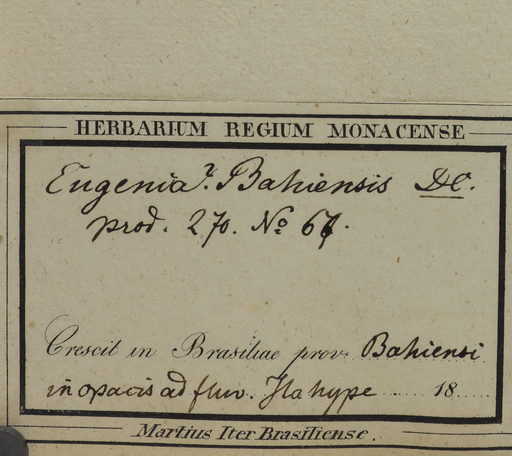 HERBARIUM REGIUM MONACENSE
Eugenia? Bahiensis DC.
prod. 270. No 67.
Crescit in Brasiliae prov. Bahiensi
in opacis ad fluv. Itahype 18
Martius Iter Brasiliense.